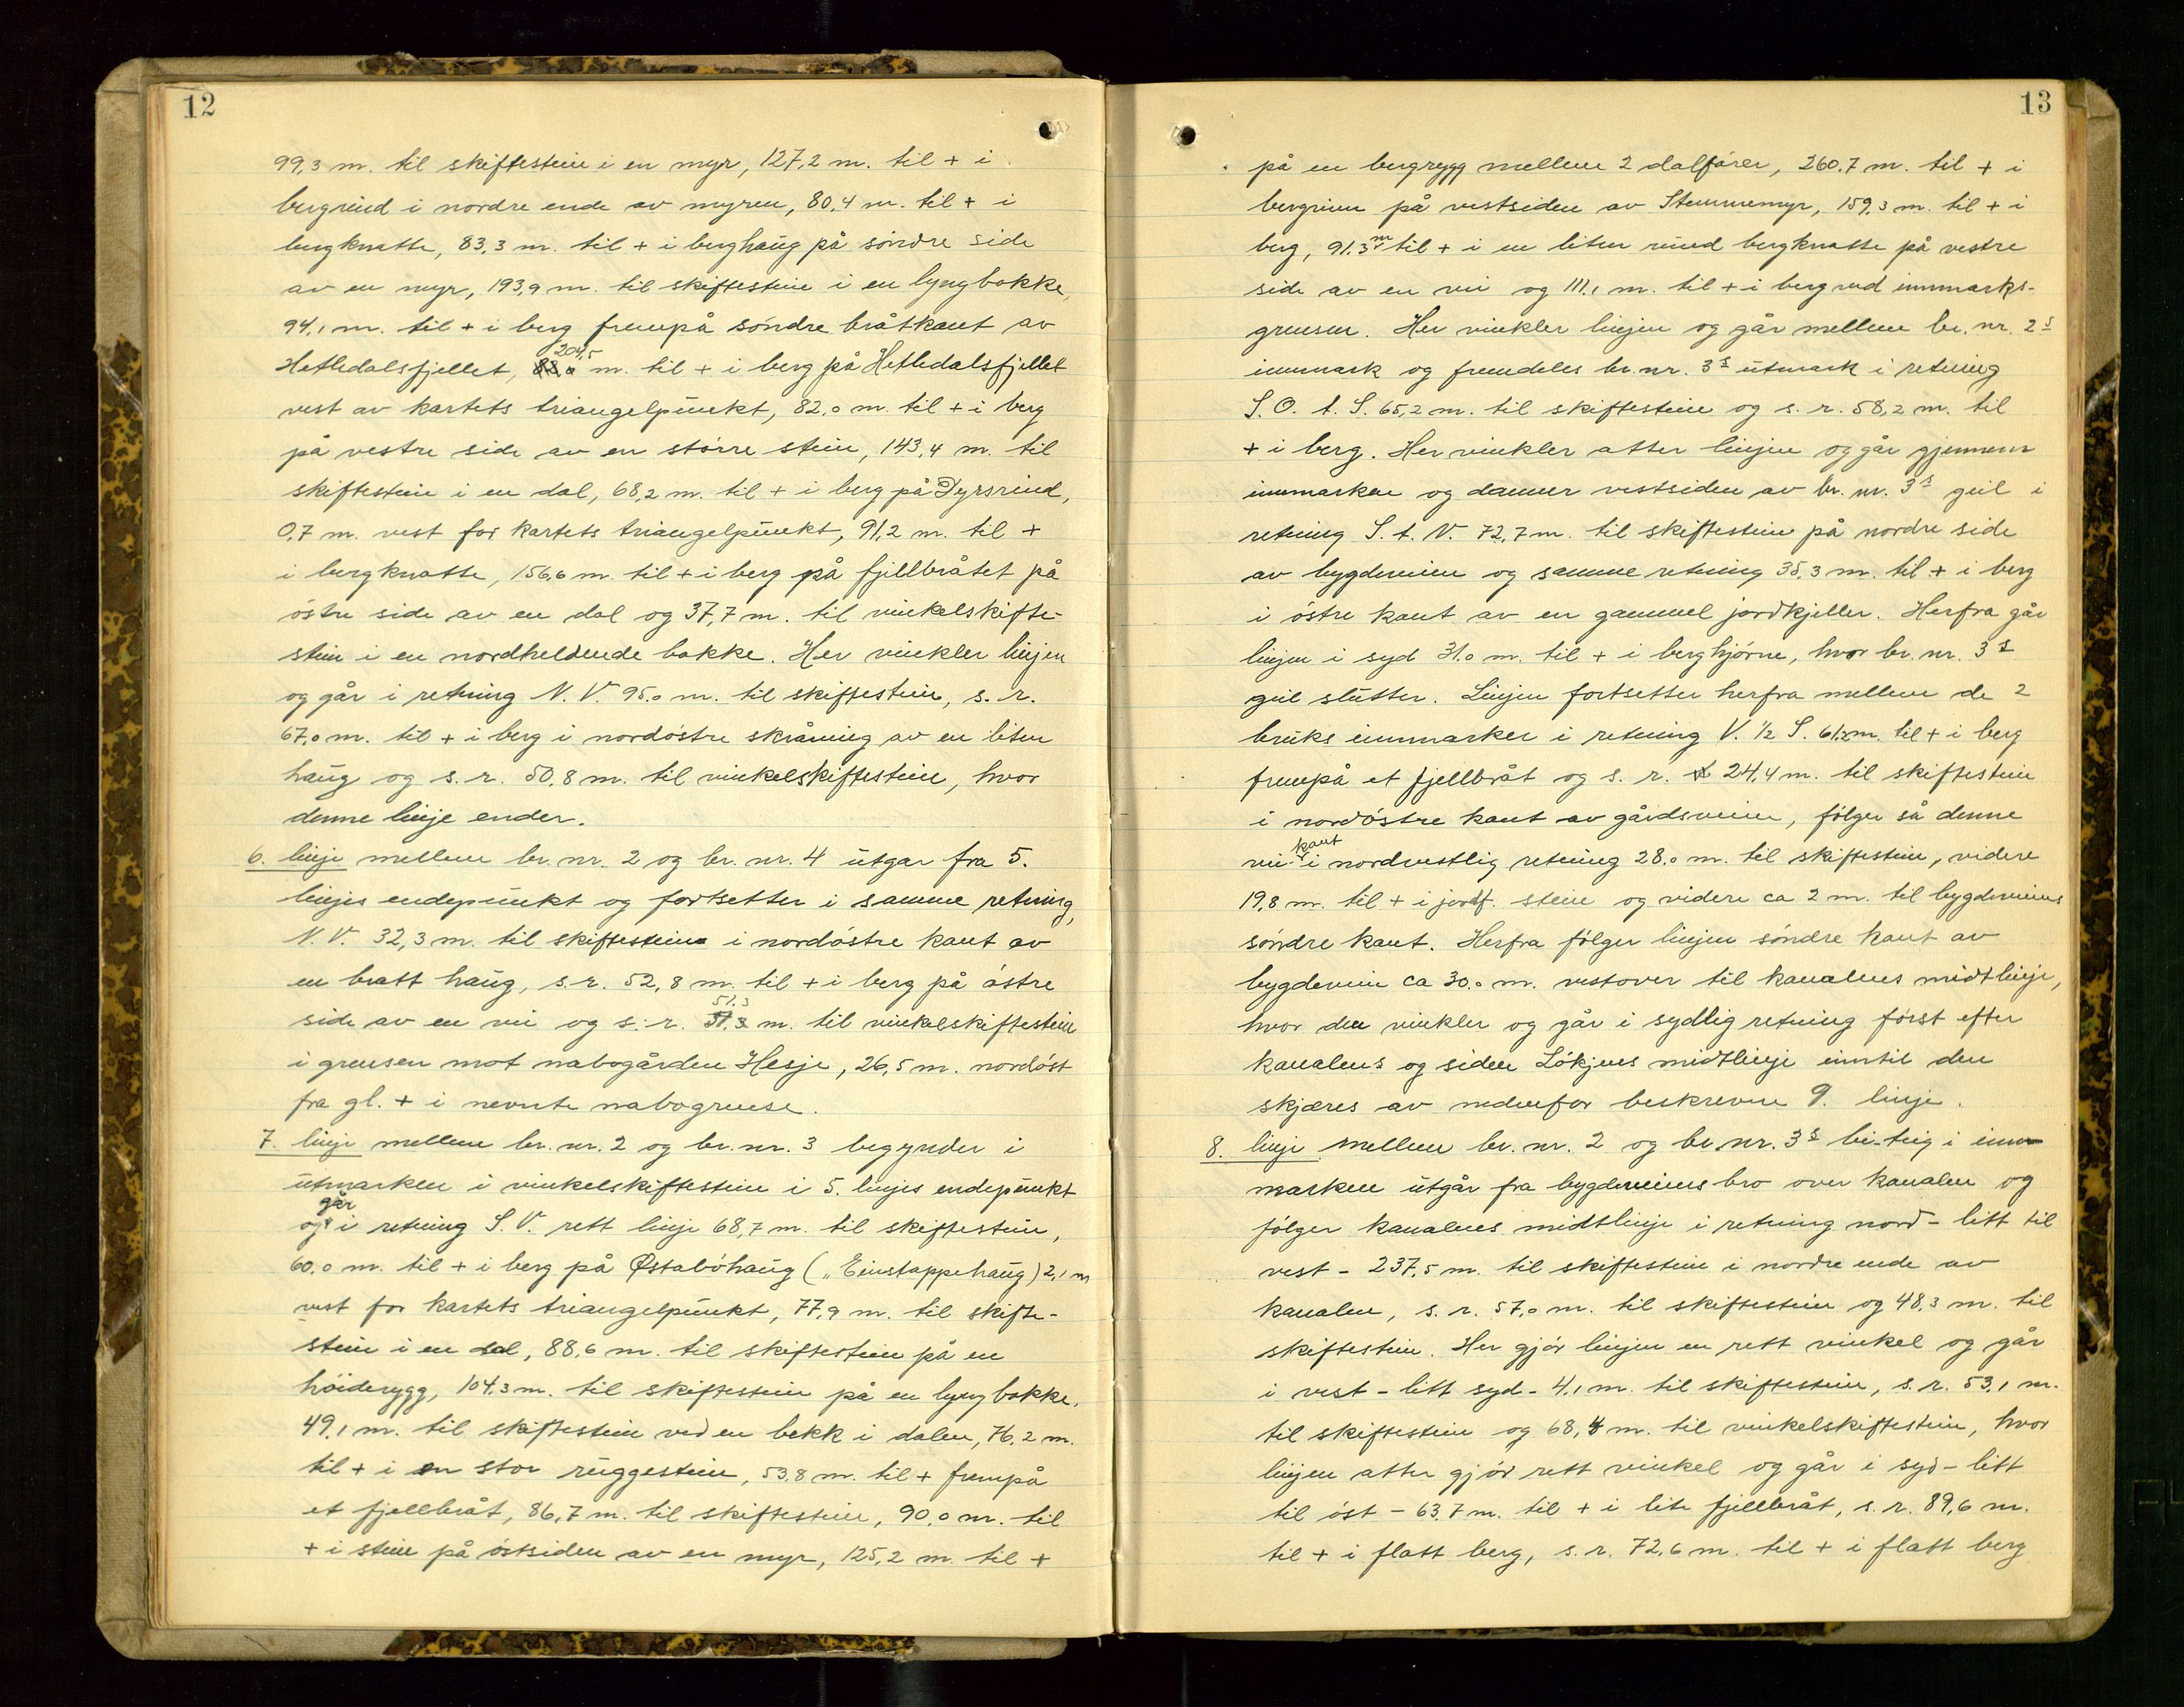 12
99,3 m. til skiftestein i en myr, 127,2 m. til + i
bergrind i nordre ende av myren, 80,4 m. til + i
bergknatte, 83,3 m. til + i berghaug på söndre side
av en myr, 193,9 m. til skiftestein i en lyngbakke,
94,1 m. til + i berg frempå söndre bråtkant av
Hetledalsfjellet, 204,5 m. til + i berg på Hetledalsfjellet
vest av kartets triangelpunkt, 82,0 m. til + i berg
på vestre side av en större stein, 143,4 m. til
skiftestein i en dal, 68,2 m. til + i berg på Dyrsrind,
0,7 m. vest for kartets triangelpunkt, 91,2 m. til +
i bergknatte, 156,6 m. til + i berg på fjellbråtet på
östre side av en dal og 37,7 m. til vinkelskifte-
stein i en nordheldende bakke. Her vinkler linjen
og går i retning N. V. 95,0 m. til skiftestein, s. r.
67,0 m. til + i berg i nordöstre skråning av en liten
haug og s. r. 50,8 m. til vinkelskiftestein, hvor
denne linje ender.
6. linje mellem br. nr. 2 og br. nr. 4 utgar fra 5.
linjes endepunkt og fortsetter i samme retning,
N. V. 32,3 m. til skiftestein i nordöstre kant av
en bratt haug, s. r. 52,8 m. til + i berg på östre
side av en vei og s. r. 51,3 m. til vinkelskiftestein
i grensen mot nabogården Hesje, 26,5 m. nordöst
fra gl. + i nevnte nabogrense.
7. linje mellem br. nr. 2 og br. nr. 3 begynder i
utmarken i vinkelskiftestein i 5. linjes endepunkt
og går i retning S. V. rett linje 68,7 m. til skiftestein,
60,0 m. til + i berg på Østaböhaug („Einstappehaug) 2,1 m
vest for kartets triangelpunkt, 77,9 m. til skifte-
stein i en dal, 88,6 m. til skiftestein på en
höiderygg, 104,3 m. til skiftestein på en lyngbakke,
49,1 m. til skiftestein ved en bekk i dalen, 76,2 m.
til + i en stor ruggestein, 53,8 m. til + frempå
et fjellbråt, 86,7 m. til skiftestein, 90,0 m. til
+ i stein på östsiden av en myr, 125,2 m. til +
13
på en bergrygg mellem 2 dalförer, 260,7 m. til + i
bergrinn på vestsiden av Stemmemyr, 159,3 m. til + i
berg, 91,3 m til + i en liten rund bergknatte på vestre
side av en vei og 111,1 m. til + i berg ved innmarks-
grensen. Her vinkler linjen og går mellem br. nr. 2s
innmark og fremdeles br. nr. 3s utmark i retning
S. O. t. S. 65,2 m. til skiftestein og s. r. 58,2 m. til
+ i berg. Her vinkler atter linjen og går gjennem
innmarken og danner vestsiden av br. nr. 3s geil i
retning S. t. V. 72,7 m. til skiftestein på nordre side
av bygdeveien og samme retning 35,3 m. til + i berg
i östre kant av en gammel jordkjeller. Herfra går
linjen i syd 31,0 m. til + i berghjörne, hvor br. nr. 3s
geil slutter. Linjen fortsetter herfra mellem de 2
bruks innmarker i retning V. ½ S. 61,2 m. til + i berg
frempå et fjellbråt og s. r. 24,4 m. til skiftestein
i nordöstre kant av gårdsveien, fölger så denne
vei kant i nordvestlig retning 28,0 m. til skiftestein, videre
19,8 m. til + i jordf. stein og videre ca 2 m. til bygdeveiens
söndre kant. Herfra fölger linjen söndre kant av
bygdeveien ca 30,0 m. vestover til kanalens midtlinje,
hvor den vinkler og går i sydlig retning först efter
kanalens og siden Lökjens midtlinje inntil den
skjæres av nedenfor beskrevne 9. linje.
8. linje mellem br. nr. 2 og br. nr. 3s bi-teig i inn-
marken utgår fra bygdeveiens bro over kanalen og
fölger kanalens midtlinje i retning nord - litt til
vest - 237,5 m. til skiftestein i nordre ende av
kanalen, s. r. 57,0 m. til skiftestein og 48,3 m. til
skiftestein. Her gjör linjen en rett vinkel og går
i vest - litt syd - 4,1 m. til skiftestein, s. r. 53,1 m.
til skiftestein og 68,4 m. til vinkelskiftestein, hvor
linjen atter gjör rett vinkel og går i syd - litt
til öst - 63,7 m. til + i lite fjellbråt, s. r. 89,6 m.
til + i flatt berg, s. r. 72,6 m. til + i flatt berg